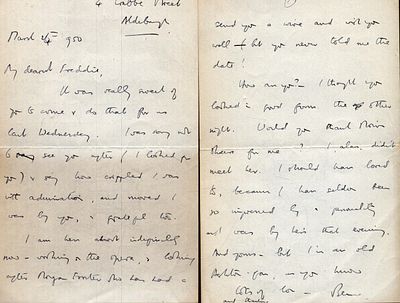 4 Crabbe Street
Aldeburgh
March 4th 1950
My dearest Freddie,
It was really sweet of
you to come & do that for us
last Wednesday. I was sorry not
to see you after (I looked for
you) & say how I was
with admiration, and moved I
was by you, & grateful too.
I am here about
now - working on the opera, & looking
after Morgan Forster who has had a
send you a wire and wish you
well - but you never told me the
date!
How are you? - I thought you
looked in good form the other
night. Would you thank
for me? I, alas, didn't
meet her. I should have loved
to, because I have seldom been
so impressed by a personality
as I was by hers that evening.
And yours - but I'm an old
Ashton-fan, as you know
Lots of love - Ben
and